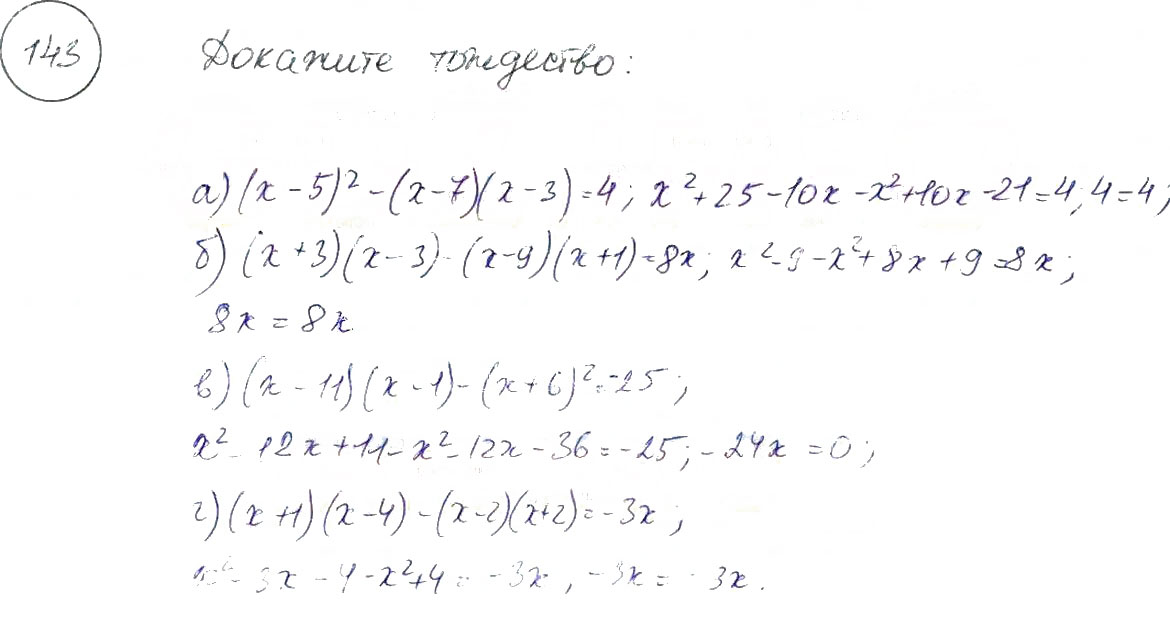 143 Докажите тождество:
а) (x - 5)² - (x - 7)(x - 3) = 4; x² + 25 - 10x - x² + 10x - 21 = 4; 4 = 4;
б) (x + 3)(x - 3) - (x - 9)(x + 1) = 8x; x² - 9 - x² + 8x + 9 = 8x;
8x = 8x
в) (x - 11)(x - 1) - (x + 6)² = -25;
x² - 12x + 11 - x² - 12x - 36 = -25; - 24x = 0;
г) (x + 1)(x - 4) - (x - 2)(x + 2) = -3x;
x² - 3x - 4 - x² + 4 = -3x, -3x = -3x.